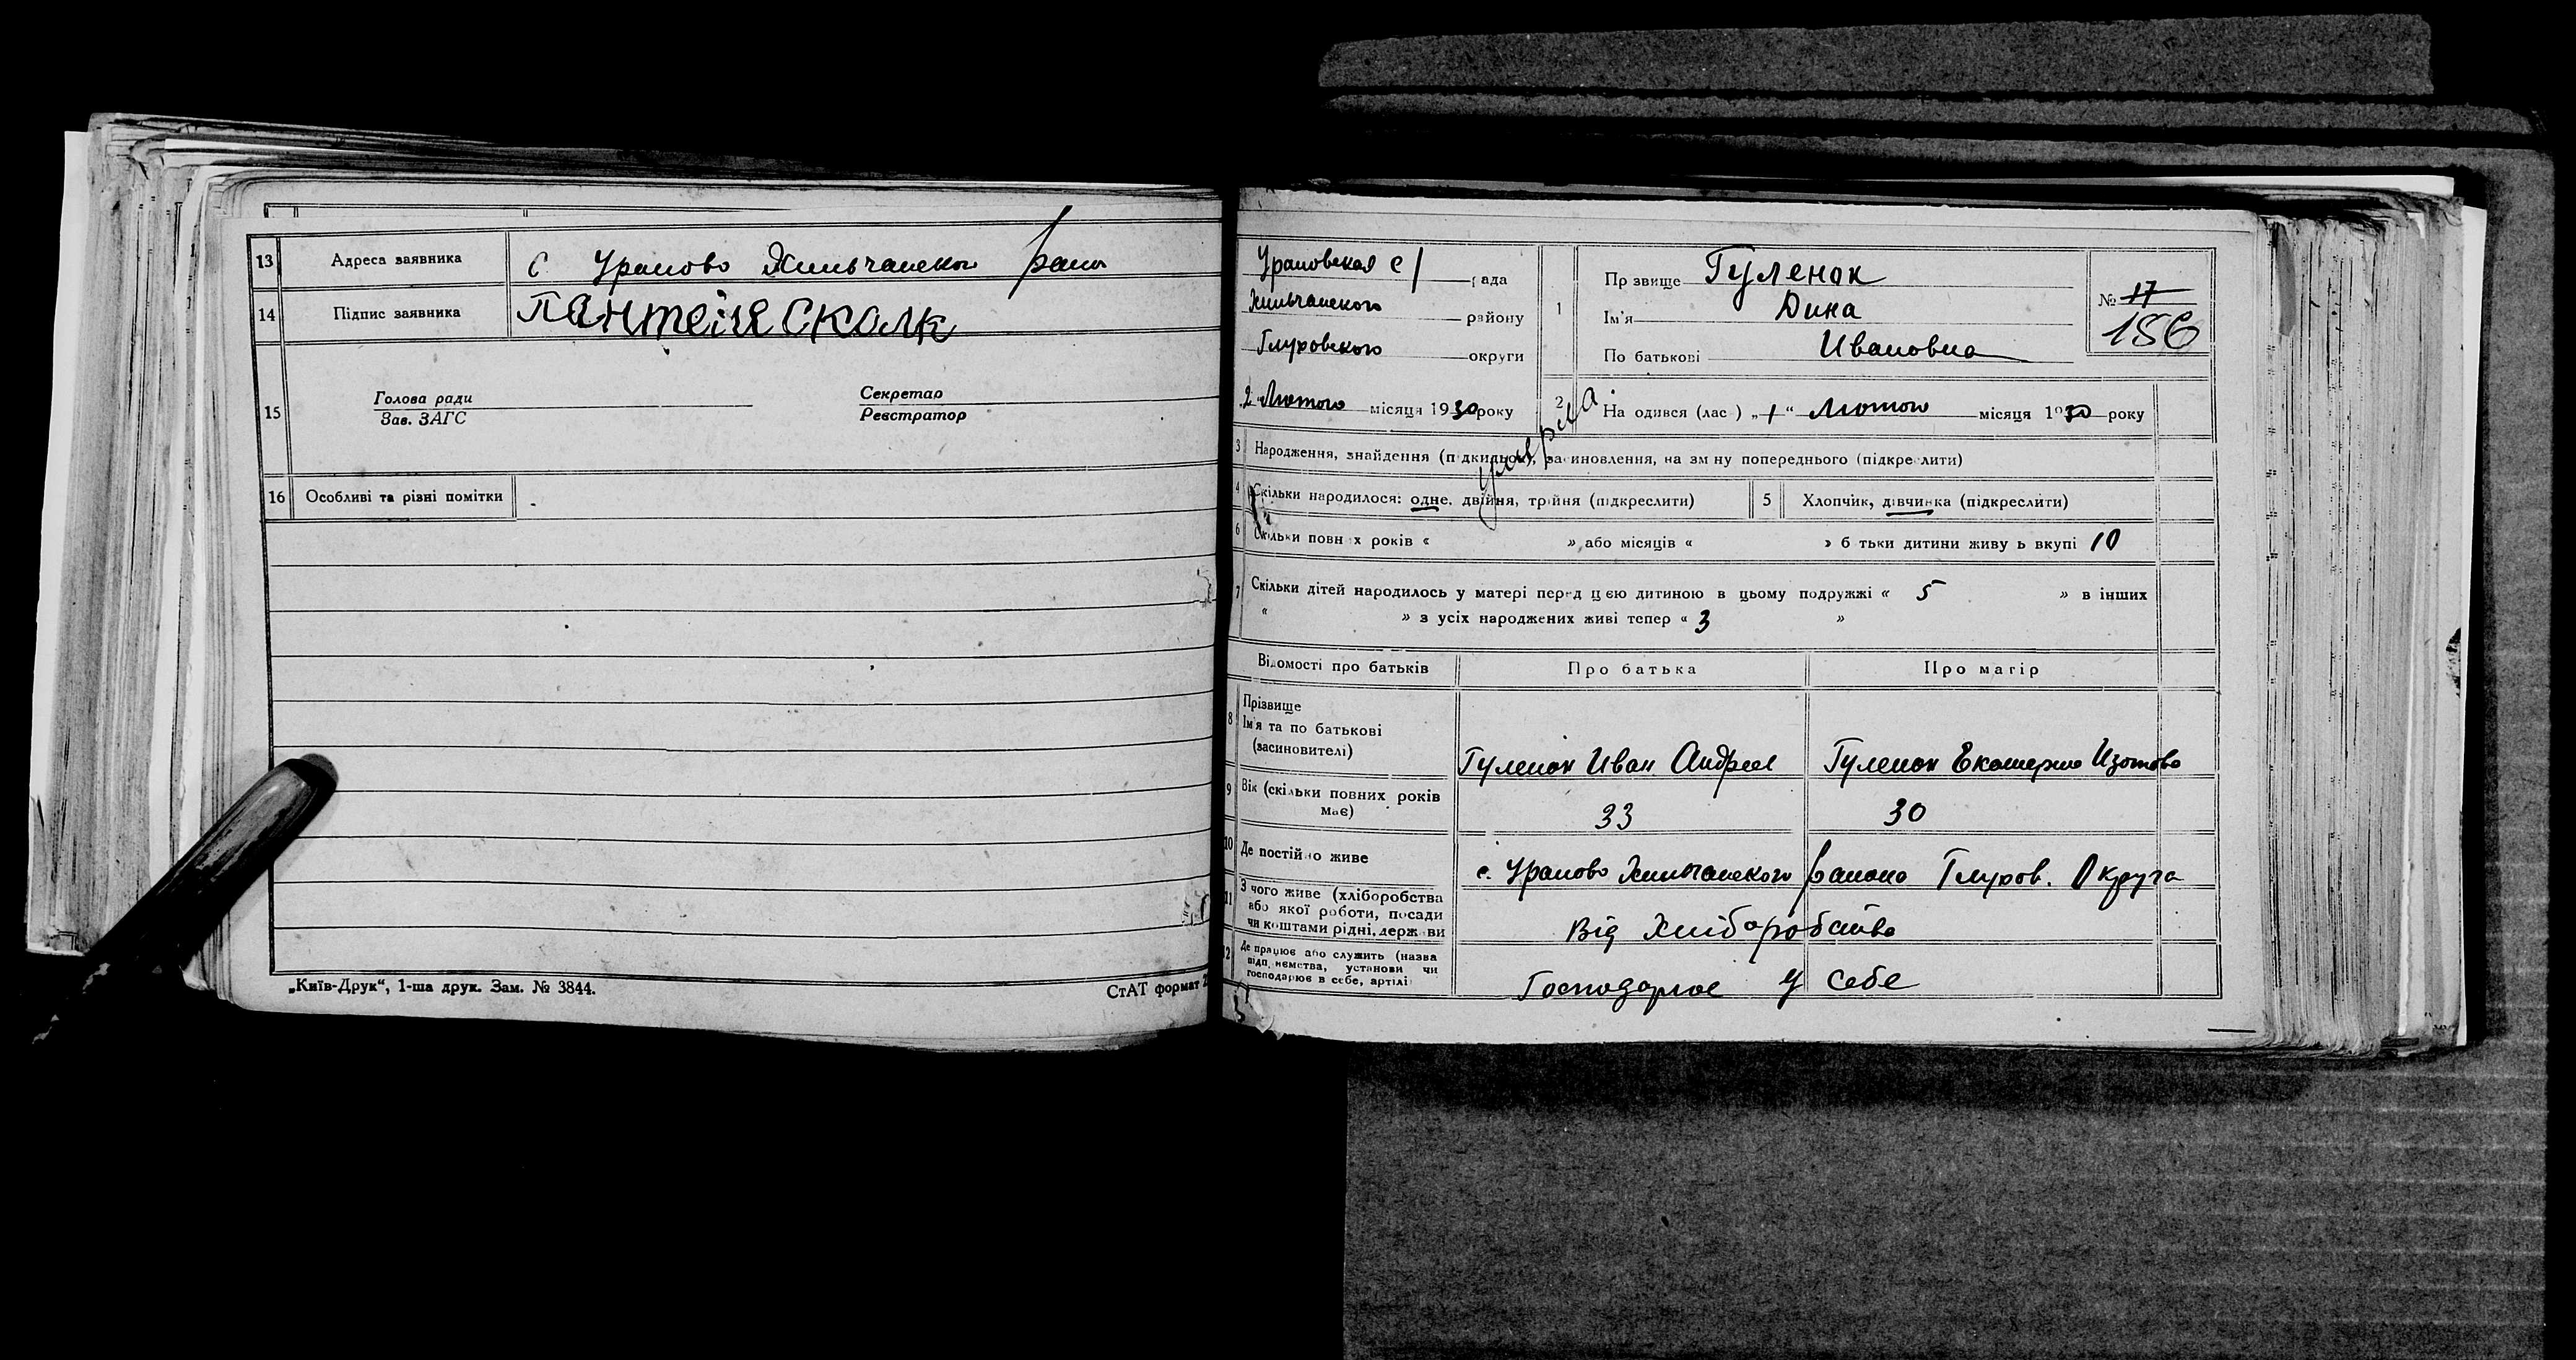 13 Адреса заявника с. Ураново Хильчанского рана
14 Підпис заявника
15 Голова ради Секретар
Зав. ЗАГС Реєстратор
16 Особливі та різні помітки
„Київ-Друк“, 1-ша друк. Зам. № 3844. СтАТ формат
Урановская с/ рада
Хильчанского району
Глуховского округи
2 Лютого місяця 1930 року
1 Прзвище Гуленок
Ім'я Дина
По батькові Ивановна
№ 17
186
умерла
2 На одився (лас ) „1“ Лютого місяця 1930 року
3 Народження, знайдення (п дкидьок), за иновлення, на зм ну попереднього (підкре лити)
4 Скільки народилося: одне, двійня, трійня (підкреслити) 5 Хлопчик, дівчинка (підкреслити)
6 Скільки повн х років « » або місяців « » б тьки дитини живу ь вкупі 10
7 Скільки дітей народилось у матері перед цією дитиною в цьому подружжі « 5 » в інших
« » з усіх народжених живі тепер « 3 »
Відомості про батьків Про батька Про матір
8 Прізвище
Ім'я та по батькові
(засиновителі) Гуленок Иван Андрее Гуленок Екатерина Изотово
9 Вік (скільки повних років
має) 33 30
10 Де постійно живе с. Ураново Хильчанского района Глухов. Округа
11 З чого живе (хліборобства
або якої роботи, посади
чи коштами рідні, держави Від Хліборобства
12 Де працює або служить (назва
підп иємства, установи чи
господарює в себе, артілі Господарює у себе